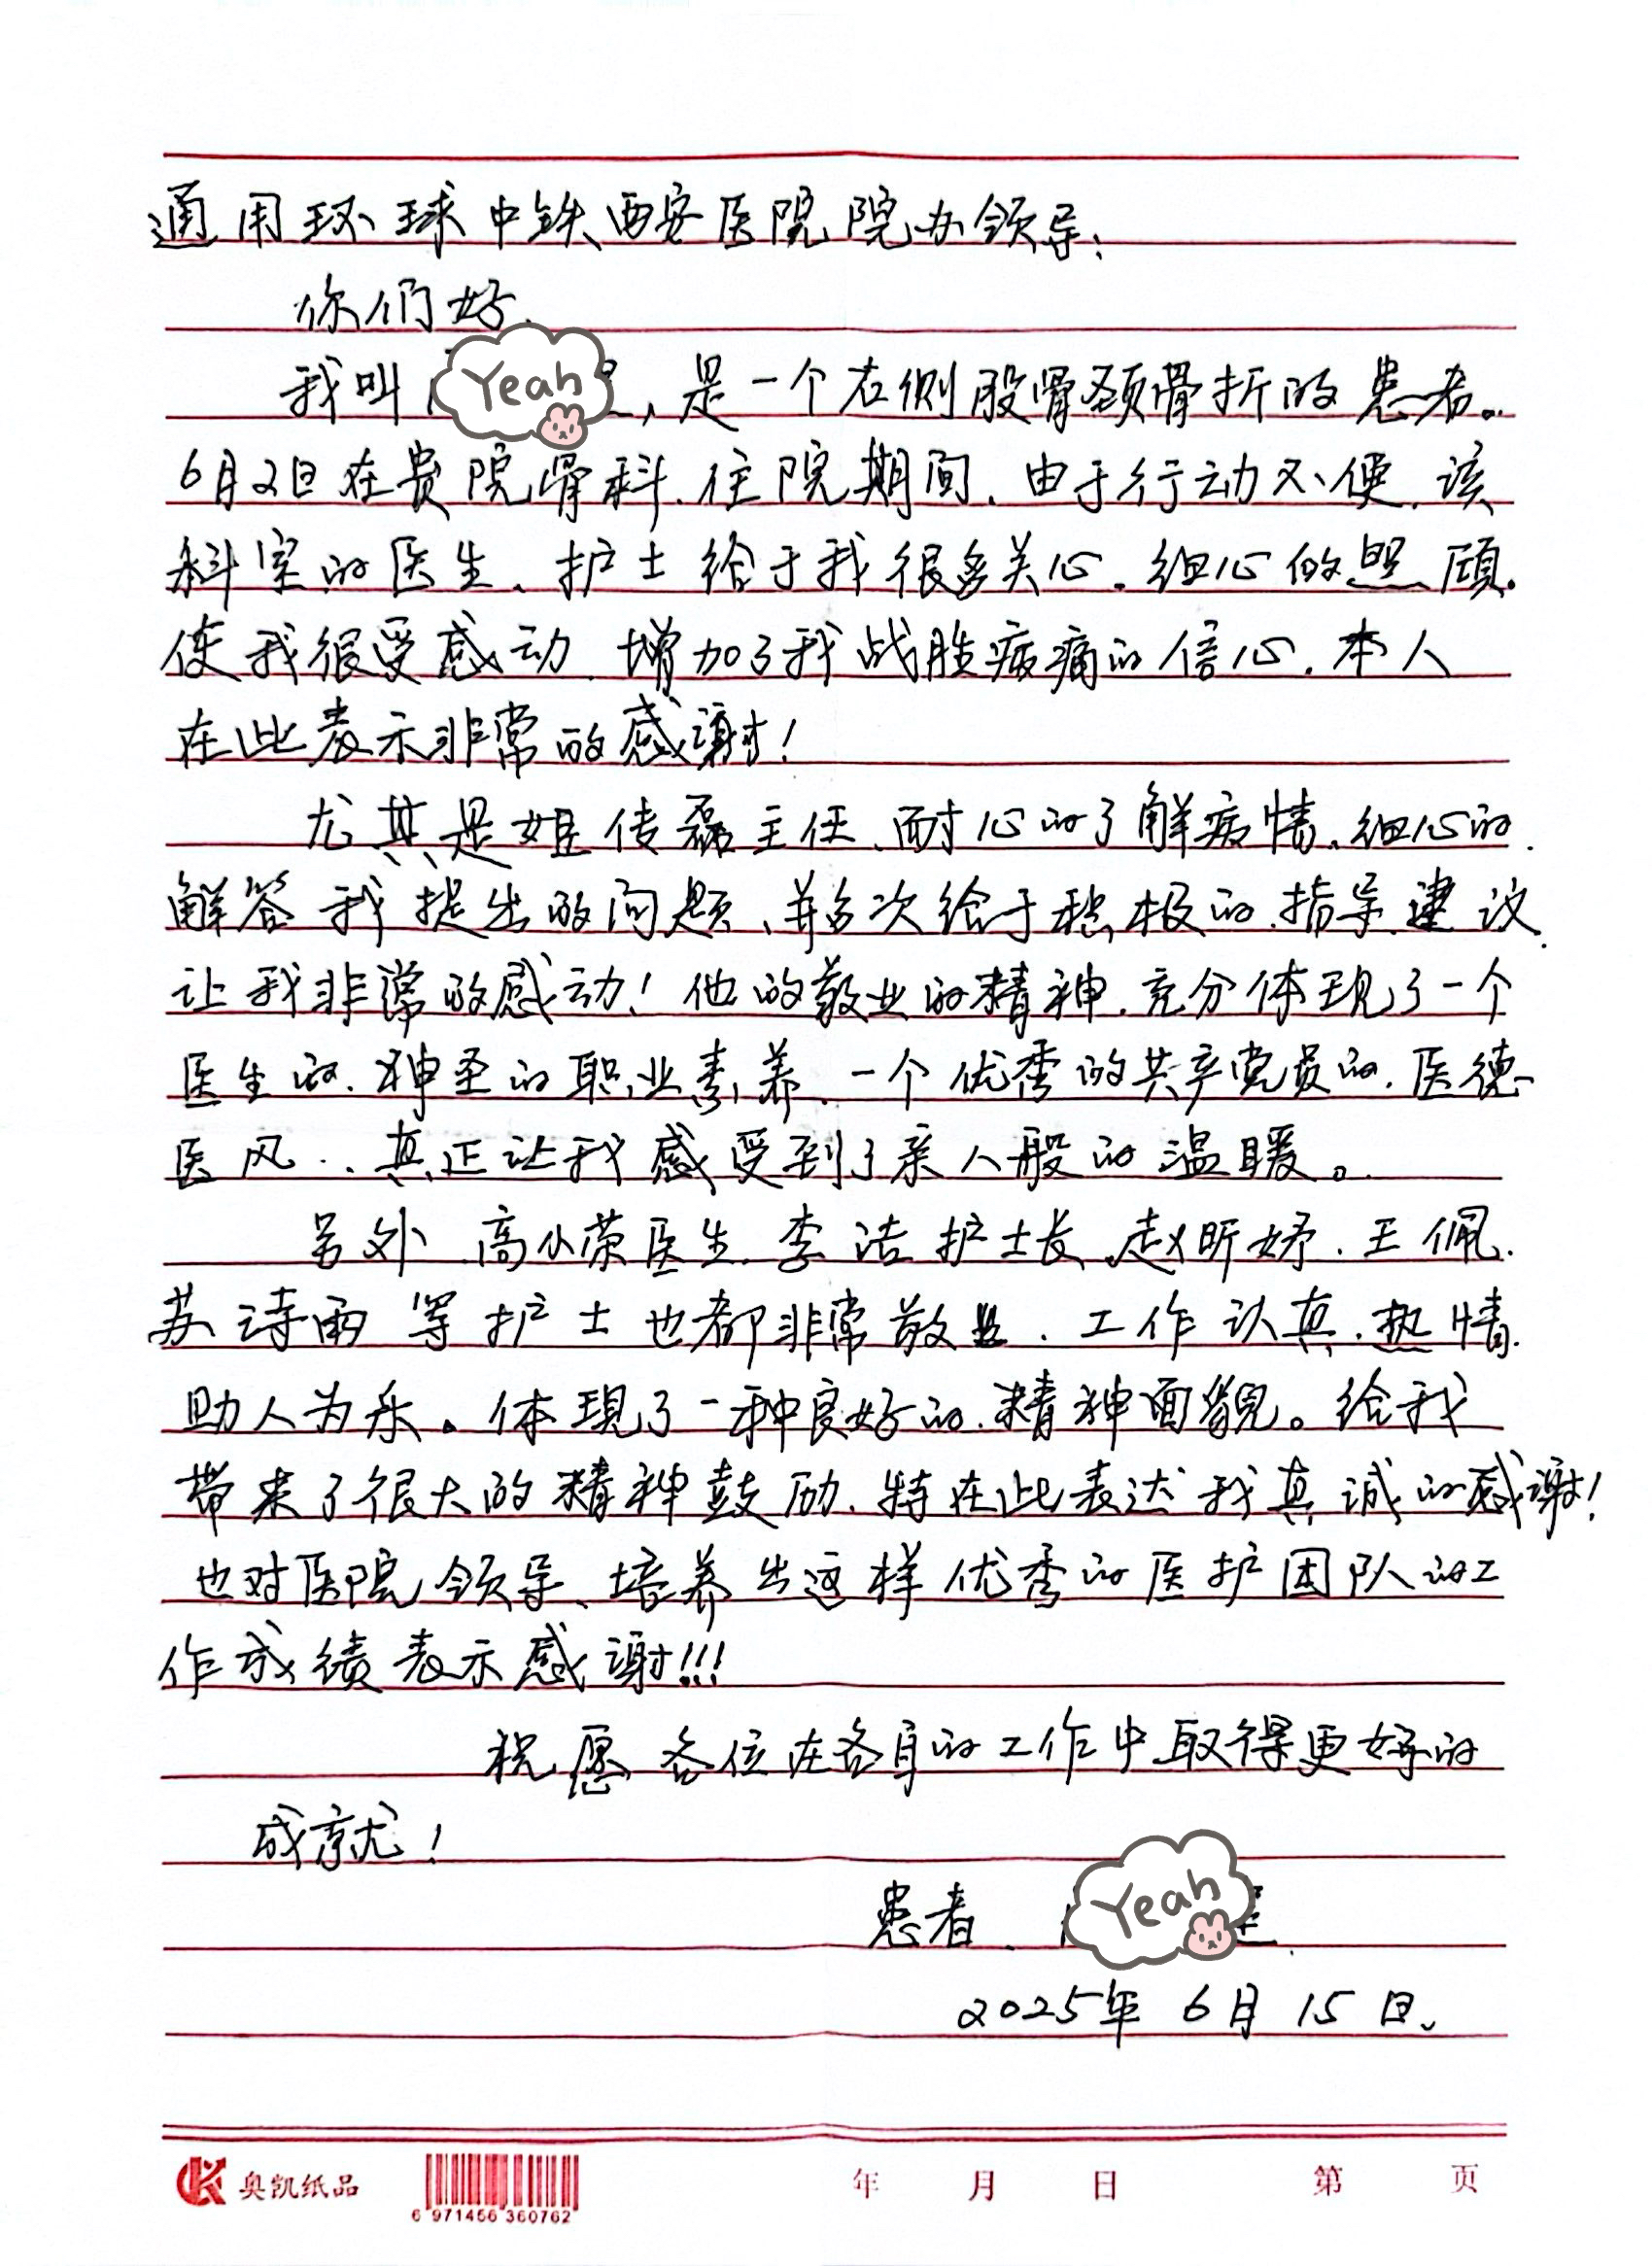 通用环球中铁西安医院院办领导:
你们好.
我叫 Yeah ,是一个右侧股骨颈骨折的患者。
6月2日在贵院骨科.住院期间.由于行动不便.该
科室的医生、护士给于我很多关心.细心的照顾.
使我很受感动.增加了我战胜病痛的信心.本人
在此表示非常的感谢!
尤其是姬传磊主任、耐心的了解病情、细心的.
解答我提出的问题、并多次给于积极的.指导建议.
让我非常的感动!他的敬业的精神.充分体现了一个
医生的.神圣的职业素养、一个优秀的共产党员的.医德
医风..真正让我感受到了亲人般的温暖。
另外.高小荣医生.李洁护士长.赵昕妤.王佩.
苏诗雨等护士也都非常敬业.工作认真.热情.
助人为乐。体现了一种良好的.精神面貌。给我
带来了很大的精神鼓励、特在此表达我真诚的感谢!
也对医院领导、培养出这样优秀的医护团队的工
作成绩表示感谢!!!
祝愿各位在各自的工作中取得更好的
成就!
患者. Yeah
2025年6月15日.
奥凯纸品 年 月 日 第 页
6 971456 360762